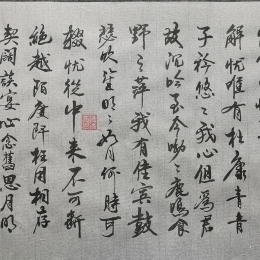 解憂惟有杜康青青
子衿悠々我心但為君
故沉吟至今呦々鹿鳴食
野之萍我有佳賓鼓
瑟吹笙明々如月何時可
輟憂從中來不可斷
絕越陌度阡枉用相存
契闊談宴心念舊思月明